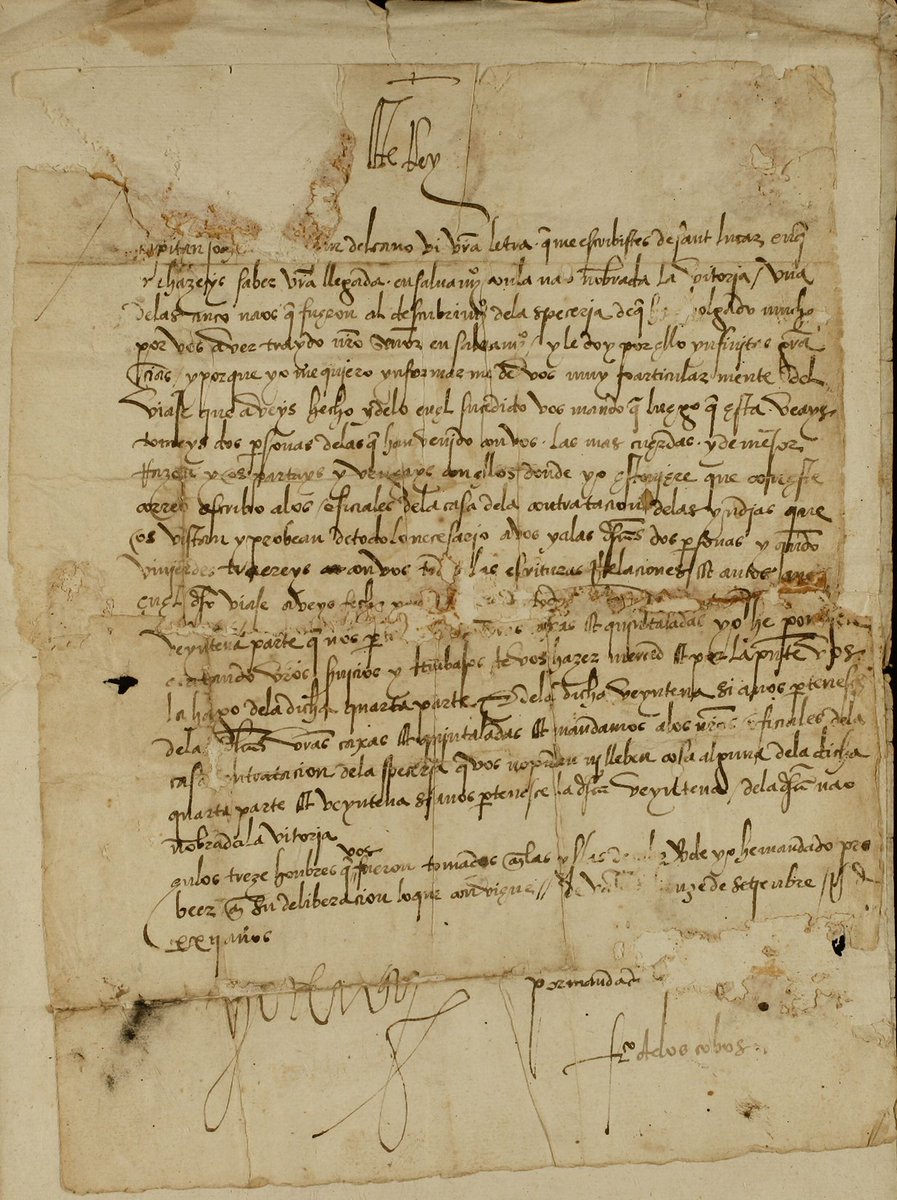 El Rey
capitan delcano vi vra letra q me escribistes de sant lucar enq
me hazeys saber vra llegada en salvamo con la nao nobrada la vitoria / una
delas cinco naos q fueron al descubrimio dela speceria deq he holgado mucho
por vos aver traydo nro señor en salvamo / y le doy por ello ynfinytas gra
cias / y porque yo me quiero ynformar me de vos muy particular mente del
viaje que aveys hecho y delo en el sucedido vos mando q luego q esta veays
tomeys dos psonas delas q han venido con vos las mas cuerdas y de mejor
razon y os partays y vengays con ellos donde yo estoviere que con este
correo escribo alos oficiales dela casa dela contratacion delas yndias que
os vistan y probean de todo lo necesario a vos y alas dhas dos psonas y quando
vinierdes traereys con vos las escrituras Relaciones et autos
en el dho viaje aveys fecho
veyntena parte q nos et quintaladas yo he por bien
acatando vros servicios y trabajos de vos hazer merced et por la psente vos
la hago dela dicha quarta parte y dela dicha veyntena si a nos ptenesce
delas dhas vras caxas et quintaladas et mandamos alos nros oficiales dela
casa contratacion dela speceria q vos no piden ni lleben cosa alguna dela dicha
quarta parte et veyntena si a nos ptenesce la dha veyntena / dela dha nao
nobrada la vitoria
enlos treze honbres q vos fueron tomados en las yslas de cabo Verde yo he mandado pro
beer en su deliberacion lo que conviene // de de setienbre /
xxij años
yo el Rey
por mandad
fco delos cobos